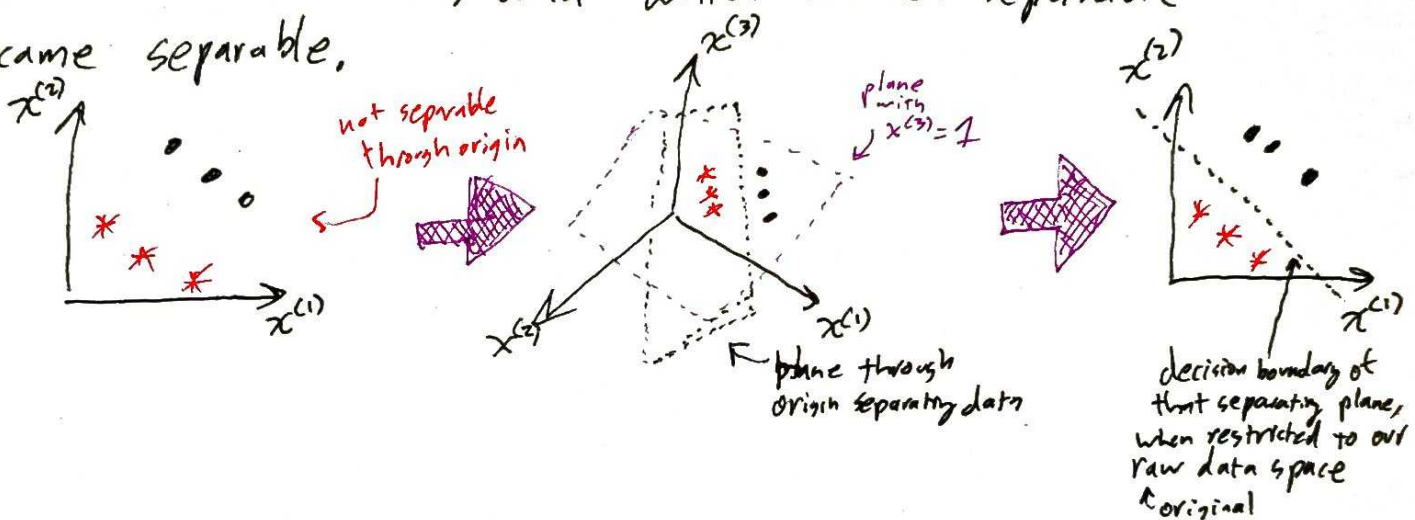 came separable.
x^(2)
x^(1)
not separable
through origin
x^(3)
x^(2)
x^(1)
plane
with
x^(3) = 1
plane through
origin separating data
x^(2)
x^(1)
decision boundary of
that separating plane,
when restricted to our
raw data space
original